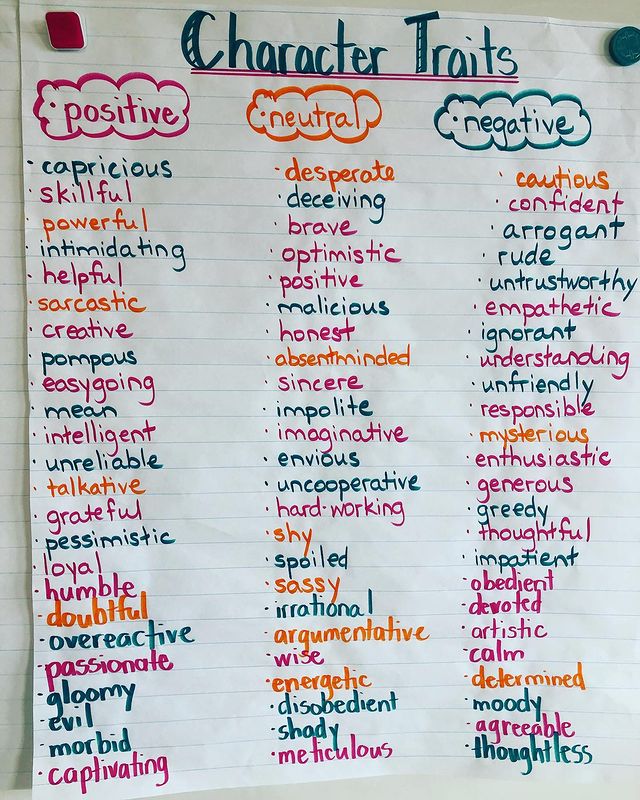 Character Traits
positive
neutral
negative
· capricious
· skillful
· powerful
· intimidating
· helpful
· sarcastic
· creative
· pompous
· easygoing
· mean
· intelligent
· unreliable
· talkative
· grateful
· pessimistic
· loyal
· humble
· doubtful
· overeactive
· passionate
· gloomy
· evil
· morbid
· captivating
· desperate
· deceiving
· brave
· optimistic
· positive
· malicious
· honest
· absentminded
· sincere
· impolite
· imaginative
· envious
· uncooperative
· hard-working
· shy
· spoiled
· sassy
· irrational
· argumentative
· wise
· energetic
· disobedient
· shady
· meticulous
· cautious
· confident
· arrogant
· rude
· untrustworthy
· empathetic
· ignorant
· understanding
· unfriendly
· responsible
· mysterious
· enthusiastic
· generous
· greedy
· thoughtful
· impatient
· obedient
· devoted
· artistic
· calm
· determined
· moody
· agreeable
· thoughtless